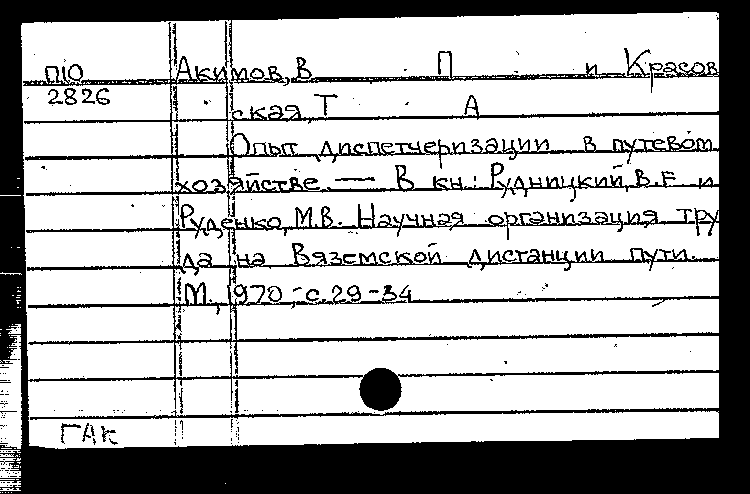 П10 Акимов, В П и Красов
2826 ская, Т А
Опыт диспетчеризации в путевом
хозяйстве. — В кн.: Рудницкий, В.Е и
Руденко, М.В. Научная организация тру
да на Вяземской дистанции пути.
М., 1970, с. 29-34
ГАК